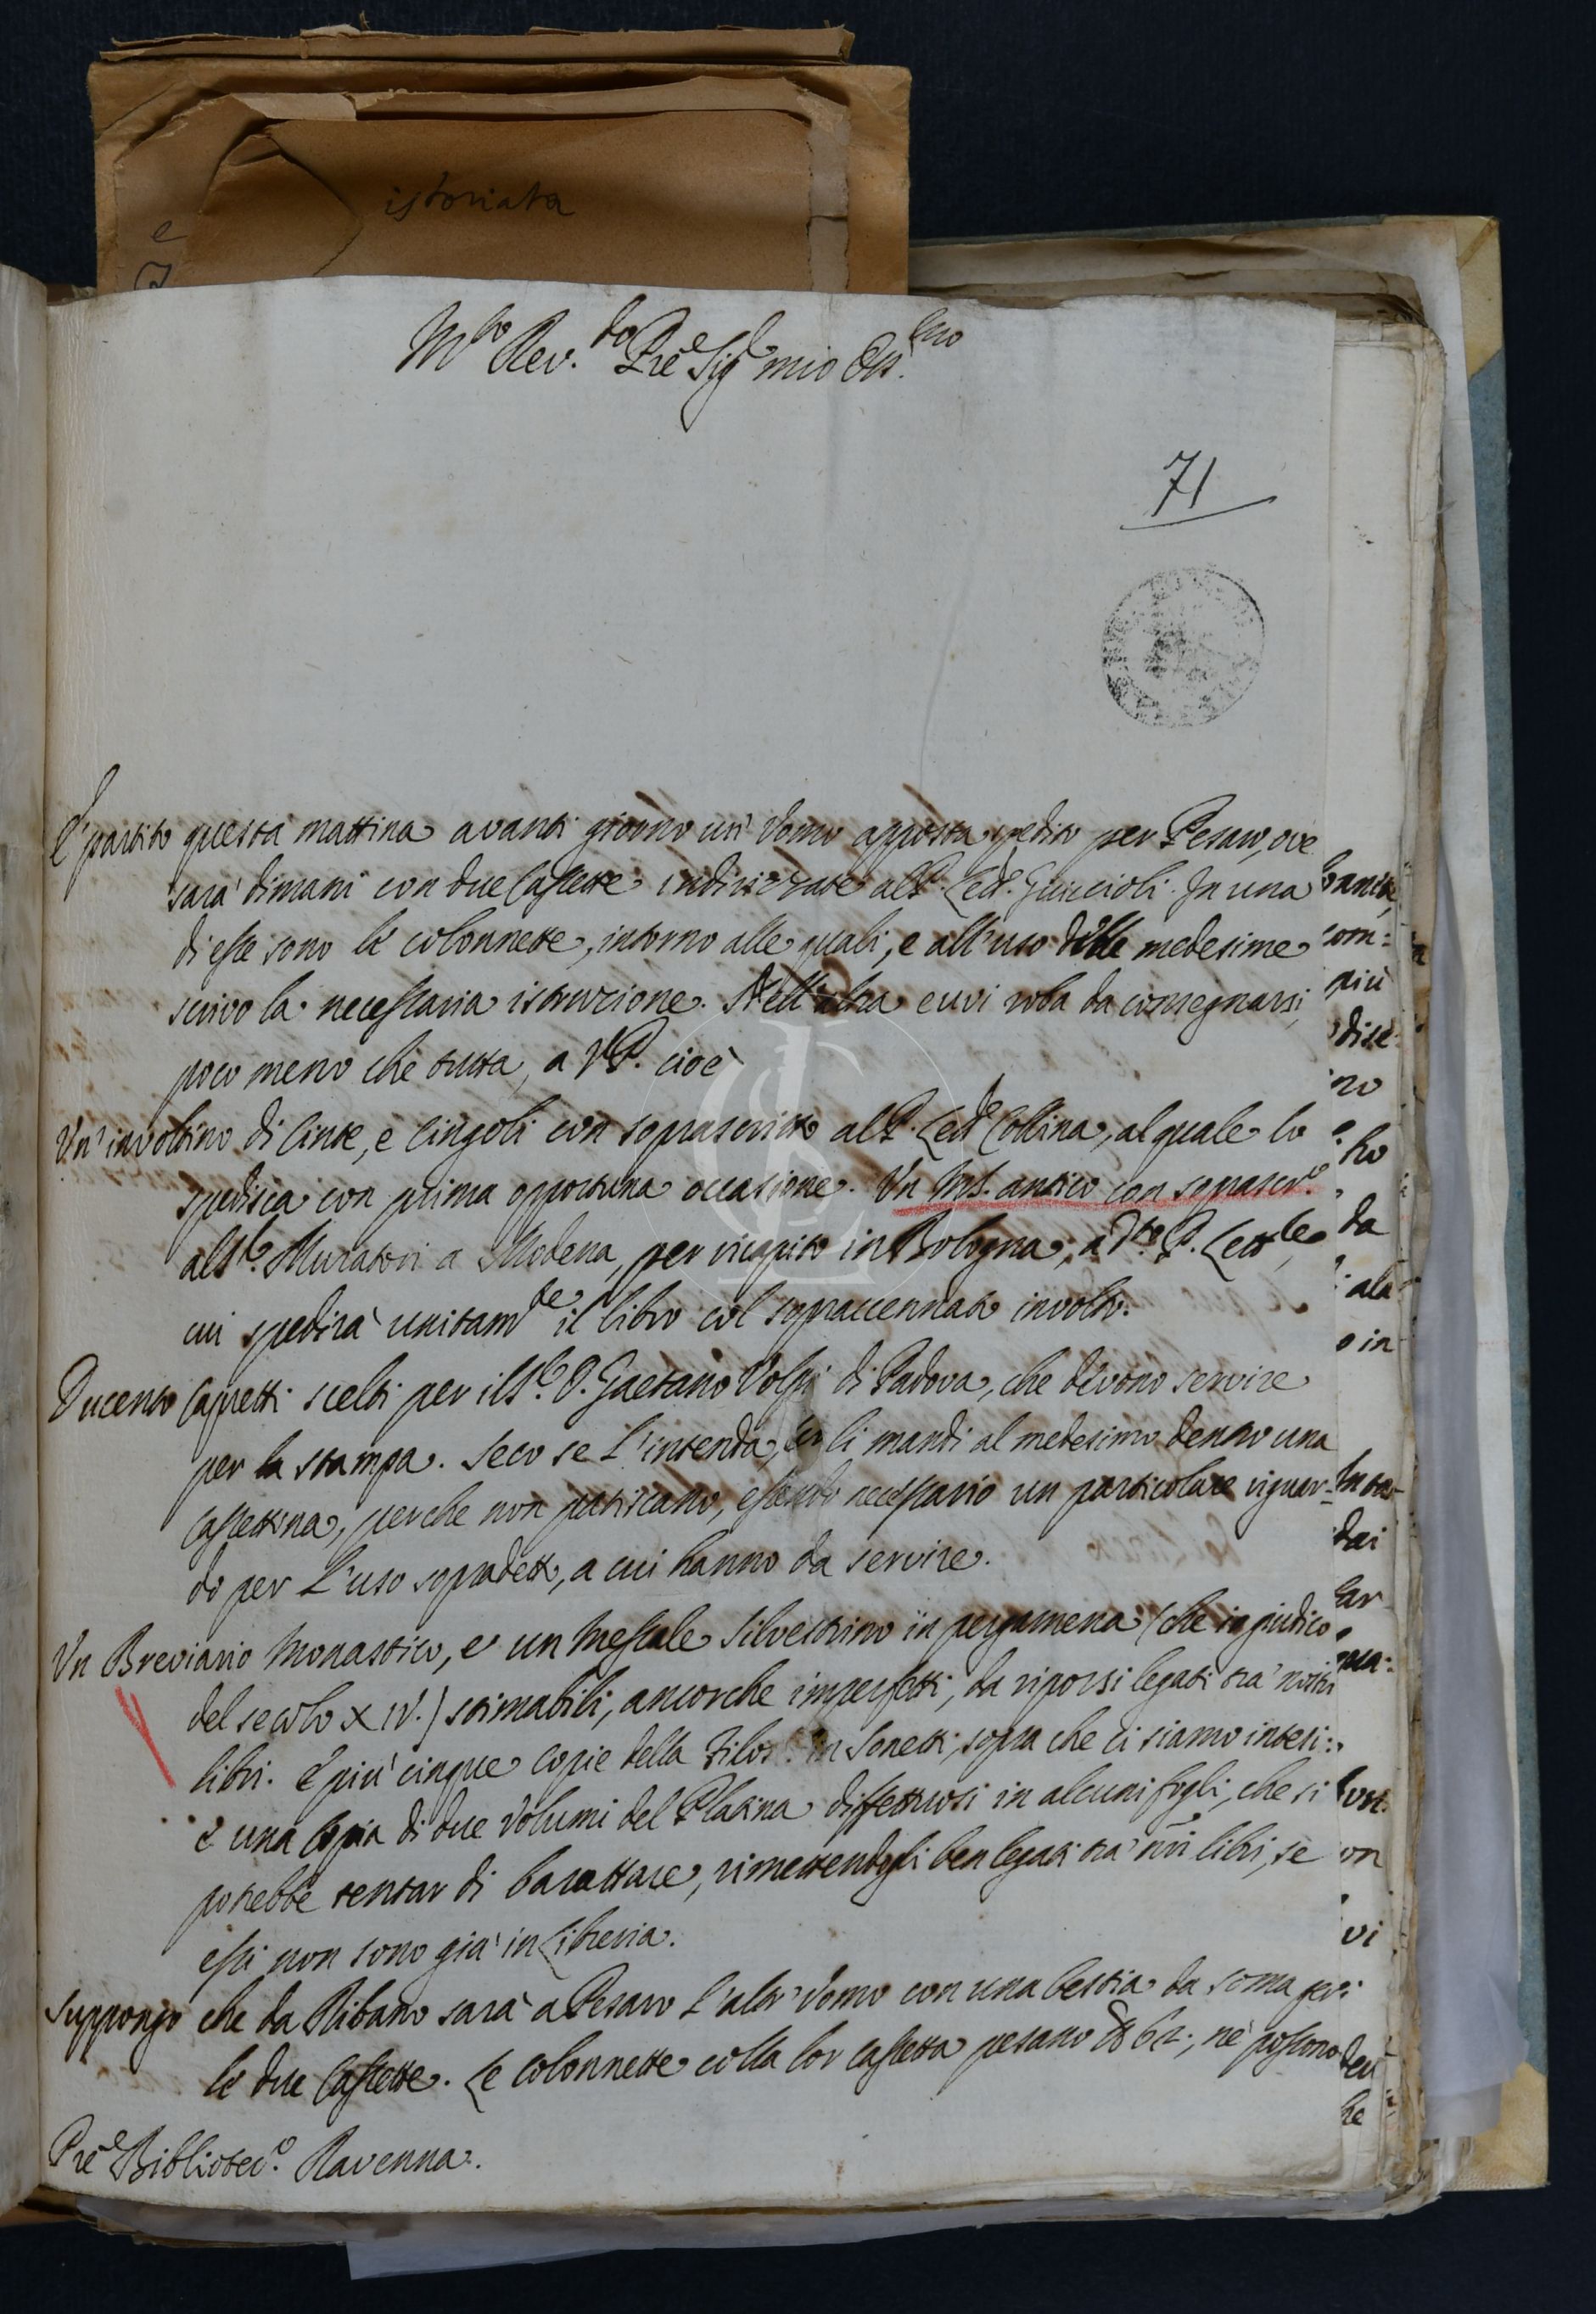 istoriata
e
M.to Rev.do P're Sig.r mio Oss.mo
71
È partito questa mattina avanti giorno un' Uomo apposta spedito per Pesaro, ove
sarà dimani con due Cassette indirizzate al P. Lett.e Guiccioli. In una
di esse sono le colonnette, intorno alle quali, e all'uso delle medesime
scrivo la necessaria istruzione. Nell'altra euvi roba da consegnarsi,
poco meno che tutta, a V.P. cioè
Un' involtino di Cinte, e Cingoli con soprascritto al P. Lett.e Collina, al quale lo
spedisca con prima opportuna occasione. Un Ms. antico con soprascr.o
al S.r Muratori a Modena, per ricapito in Bologna, a d.to P. Lett.re,
cui spedirà unitam.te il libro col sopraccennato involto.
Ducento Capretti scelti per il S.r D. Gaetano Volpi di Padova, che devono servire
per la stampa. Seco se l'intenda, li mandi al medesimo dentro una
Cassettina, perche non patiscano, essendo necessario un particolare riguar-
do per l'uso sopradetto, a cui hanno da servire.
Un Breviario Monastico, e un Messale Silvestrino in pergamena (che io giudico
del secolo XIV.) stimabili, ancorche imperfetti, da riporsi legati trà nostri
libri. È più cinque copie della Filos. in Sonetti, sopra che ci siamo intesi:
e una copia di due Volumi del Platina diffettuosi in alcuni fogli, che si
potrebbe tentar di barattare, rimettendogli ben legati tra' n'ri libri, se
essi non sono già in Libreria.
Suppongo che da Ribano sarà a Pesaro l'altr' Uomo con una bestia da soma per
le due Cassette. Le colonnette colla lor cassetta pesano ℔ 62; nè possono
P're Bibliotec.o Ravenna.
com:
più
dise
no
ho
da
ala
o in
dai
Lar
on
vi
he